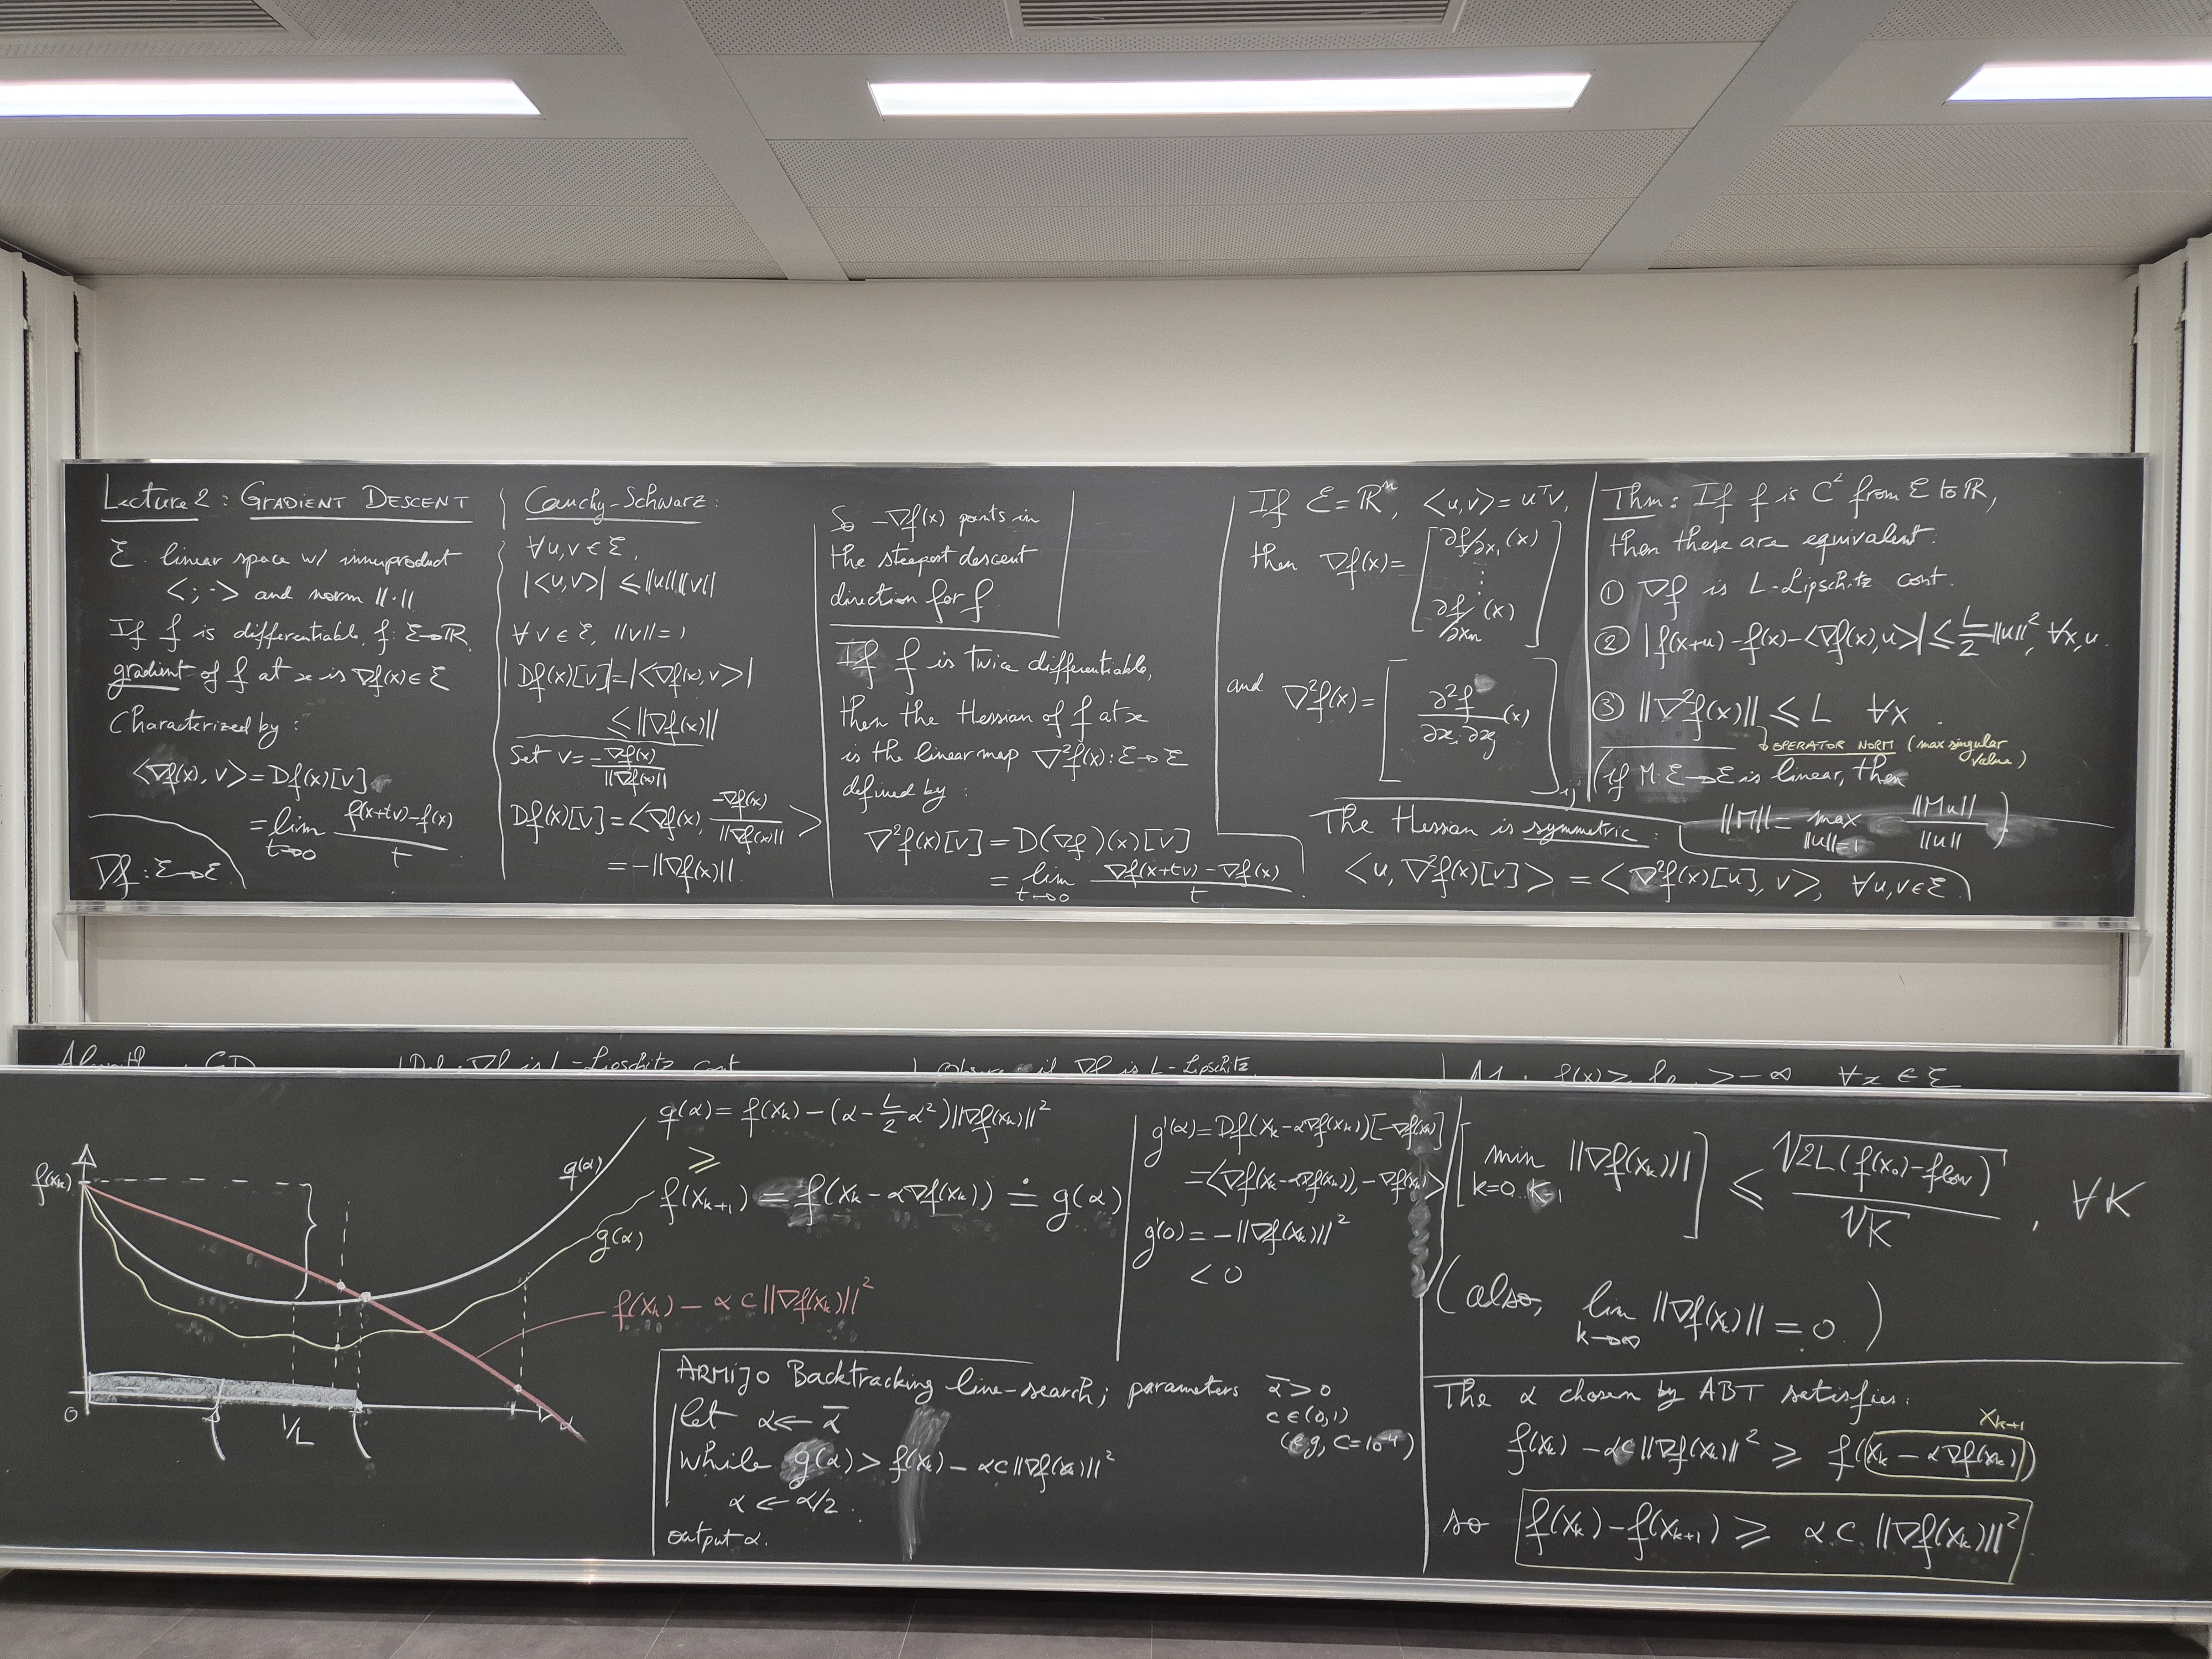 Lecture 2 : GRADIENT DESCENT
Ɛ linear space w/ inner product
<·,·> and norm ||·||
If f is differentiable, f: Ɛ→ℝ,
gradient of f at x is ∇f(x) ∈ Ɛ
Characterized by :
<∇f(x), v> = Df(x)[v]
= lim t→0 (f(x+tv) - f(x))/t
∇f : Ɛ→Ɛ
Cauchy-Schwarz :
∀u,v ∈ Ɛ,
|<u,v>| ≤ ||u|| ||v||
∀ v ∈ Ɛ, ||v|| = 1
|Df(x)[v]| = |<∇f(x), v>|
≤ ||∇f(x)||
Set v = -∇f(x)/||∇f(x)||
Df(x)[v] = <∇f(x), -∇f(x)/||∇f(x)||>
= -||∇f(x)||
So -∇f(x) points in
the steepest descent
direction for f.
If f is twice differentiable,
then the Hessian of f at x
is the linear map ∇²f(x) : Ɛ→Ɛ
defined by :
∇²f(x)[v] = D(∇f)(x)[v]
= lim t→0 (∇f(x+tv) - ∇f(x))/t
If Ɛ = ℝⁿ, <u,v> = uᵀv,
then ∇f(x) = [∂f/∂x₁ (x) ⋮ ∂f/∂xₙ (x)]
and ∇²f(x) = [∂²f/∂xᵢ∂xⱼ (x)]ᵢⱼ
The Hessian is symmetric :
<u, ∇²f(x)[v]> = <∇²f(x)[u], v>, ∀u,v ∈ Ɛ
Thm : If f is C² from Ɛ to ℝ,
then these are equivalent.
① ∇f is L-Lipschitz cont.
② |f(x+u) - f(x) - <∇f(x), u>| ≤ L/2 ||u||², ∀x,u.
③ ||∇²f(x)|| ≤ L ∀x.
↳ OPERATOR NORM (max singular
value)
(if M: Ɛ→Ɛ is linear, then
||M|| = max ||u||=1 ||Mu||/||u||)
Algorithm : GD
Def : ∇f is L-Lipschitz cont
Observe : if ∇f is L-Lipschitz
A1 : f(x) ≥ flow > -∞ ∀x ∈ Ɛ
f(xₖ)
q(α)
g(α)
0
1/L
α
q(α) = f(xₖ) - (α - L/2 α²) ||∇f(xₖ)||²
≥
f(xₖ₊₁) = f(xₖ - α∇f(xₖ)) ≐ g(α)
f(xₖ) - α c ||∇f(xₖ)||²
g'(α) = Df(xₖ - α∇f(xₖ))[-∇f(xₖ)]
= <∇f(xₖ - α∇f(xₖ)), -∇f(xₖ)>
g'(0) = -||∇f(xₖ)||²
< 0
ARMIJO Backtracking line-search; parameters ᾱ > 0
c ∈ (0,1)
(e.g., c = 10⁻⁴)
let α ← ᾱ
while g(α) > f(xₖ) - αc||∇f(xₖ)||²
α ← α/2.
output α.
[min k=0...K-1 ||∇f(xₖ)||] ≤ √(2L(f(x₀) - flow))/√K, ∀K
(also, lim k→∞ ||∇f(xₖ)|| = 0.)
The α chosen by ABT satisfies:
xₖ₊₁
f(xₖ) - αc||∇f(xₖ)||² ≥ f(xₖ - α∇f(xₖ))
so f(xₖ) - f(xₖ₊₁) ≥ α c ||∇f(xₖ)||²